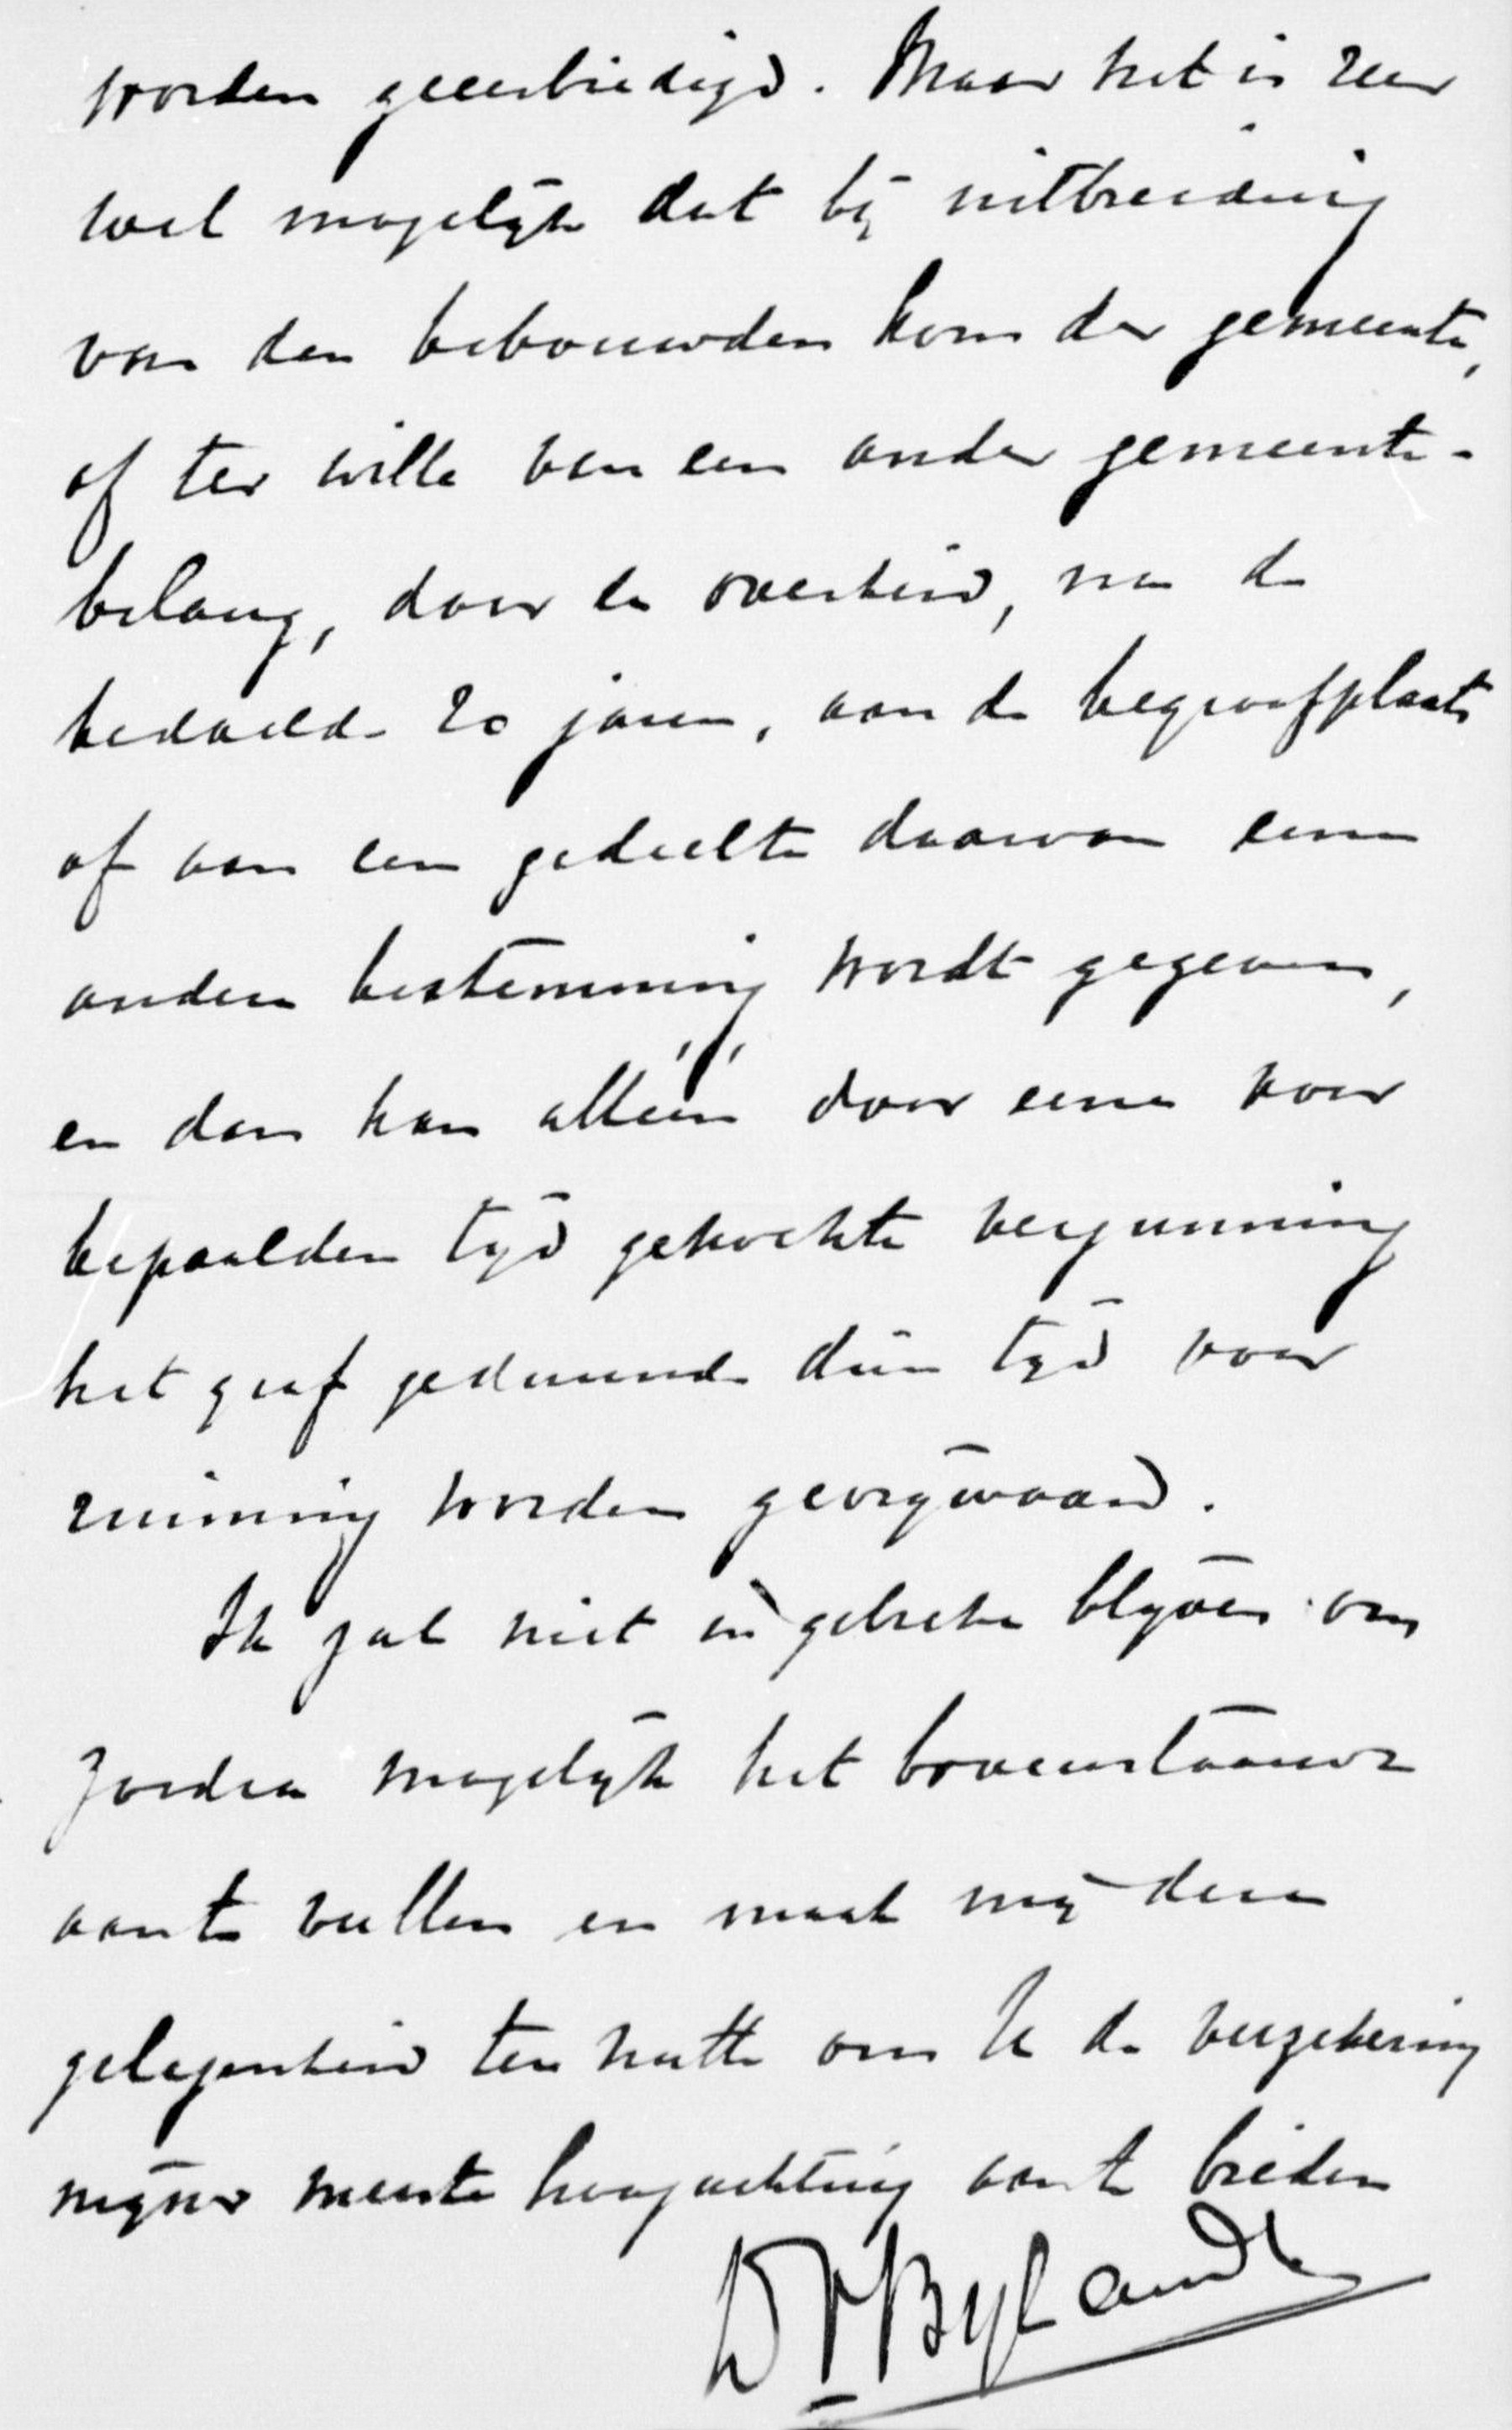 worden geëerbiedigd. Maar het is zeer
wel mogelijk dat bij uitbreiding
van den bebouwden kom der gemeente,
of ter wille van een ander gemeente-
belang, door de overheid, na de
bedoelde 20 jaren, aan de begraafplaats
of aan een gedeelte daarvan eene
andere bestemming wordt gegeven,
en dan kan alléén door eene voor
bepaalden tijd gekochte vergunning
het graf gedurende dien tijd voor
ruiming worden gevrijwaard.
Ik zal niet in gebreke blijven om
zoodra mogelijk het bovenstaande
aan te vullen en maak mij deze
gelegenheid ten nutte om U de verzekering
mijner meeste hoogachting aan te bieden
DvBylandt